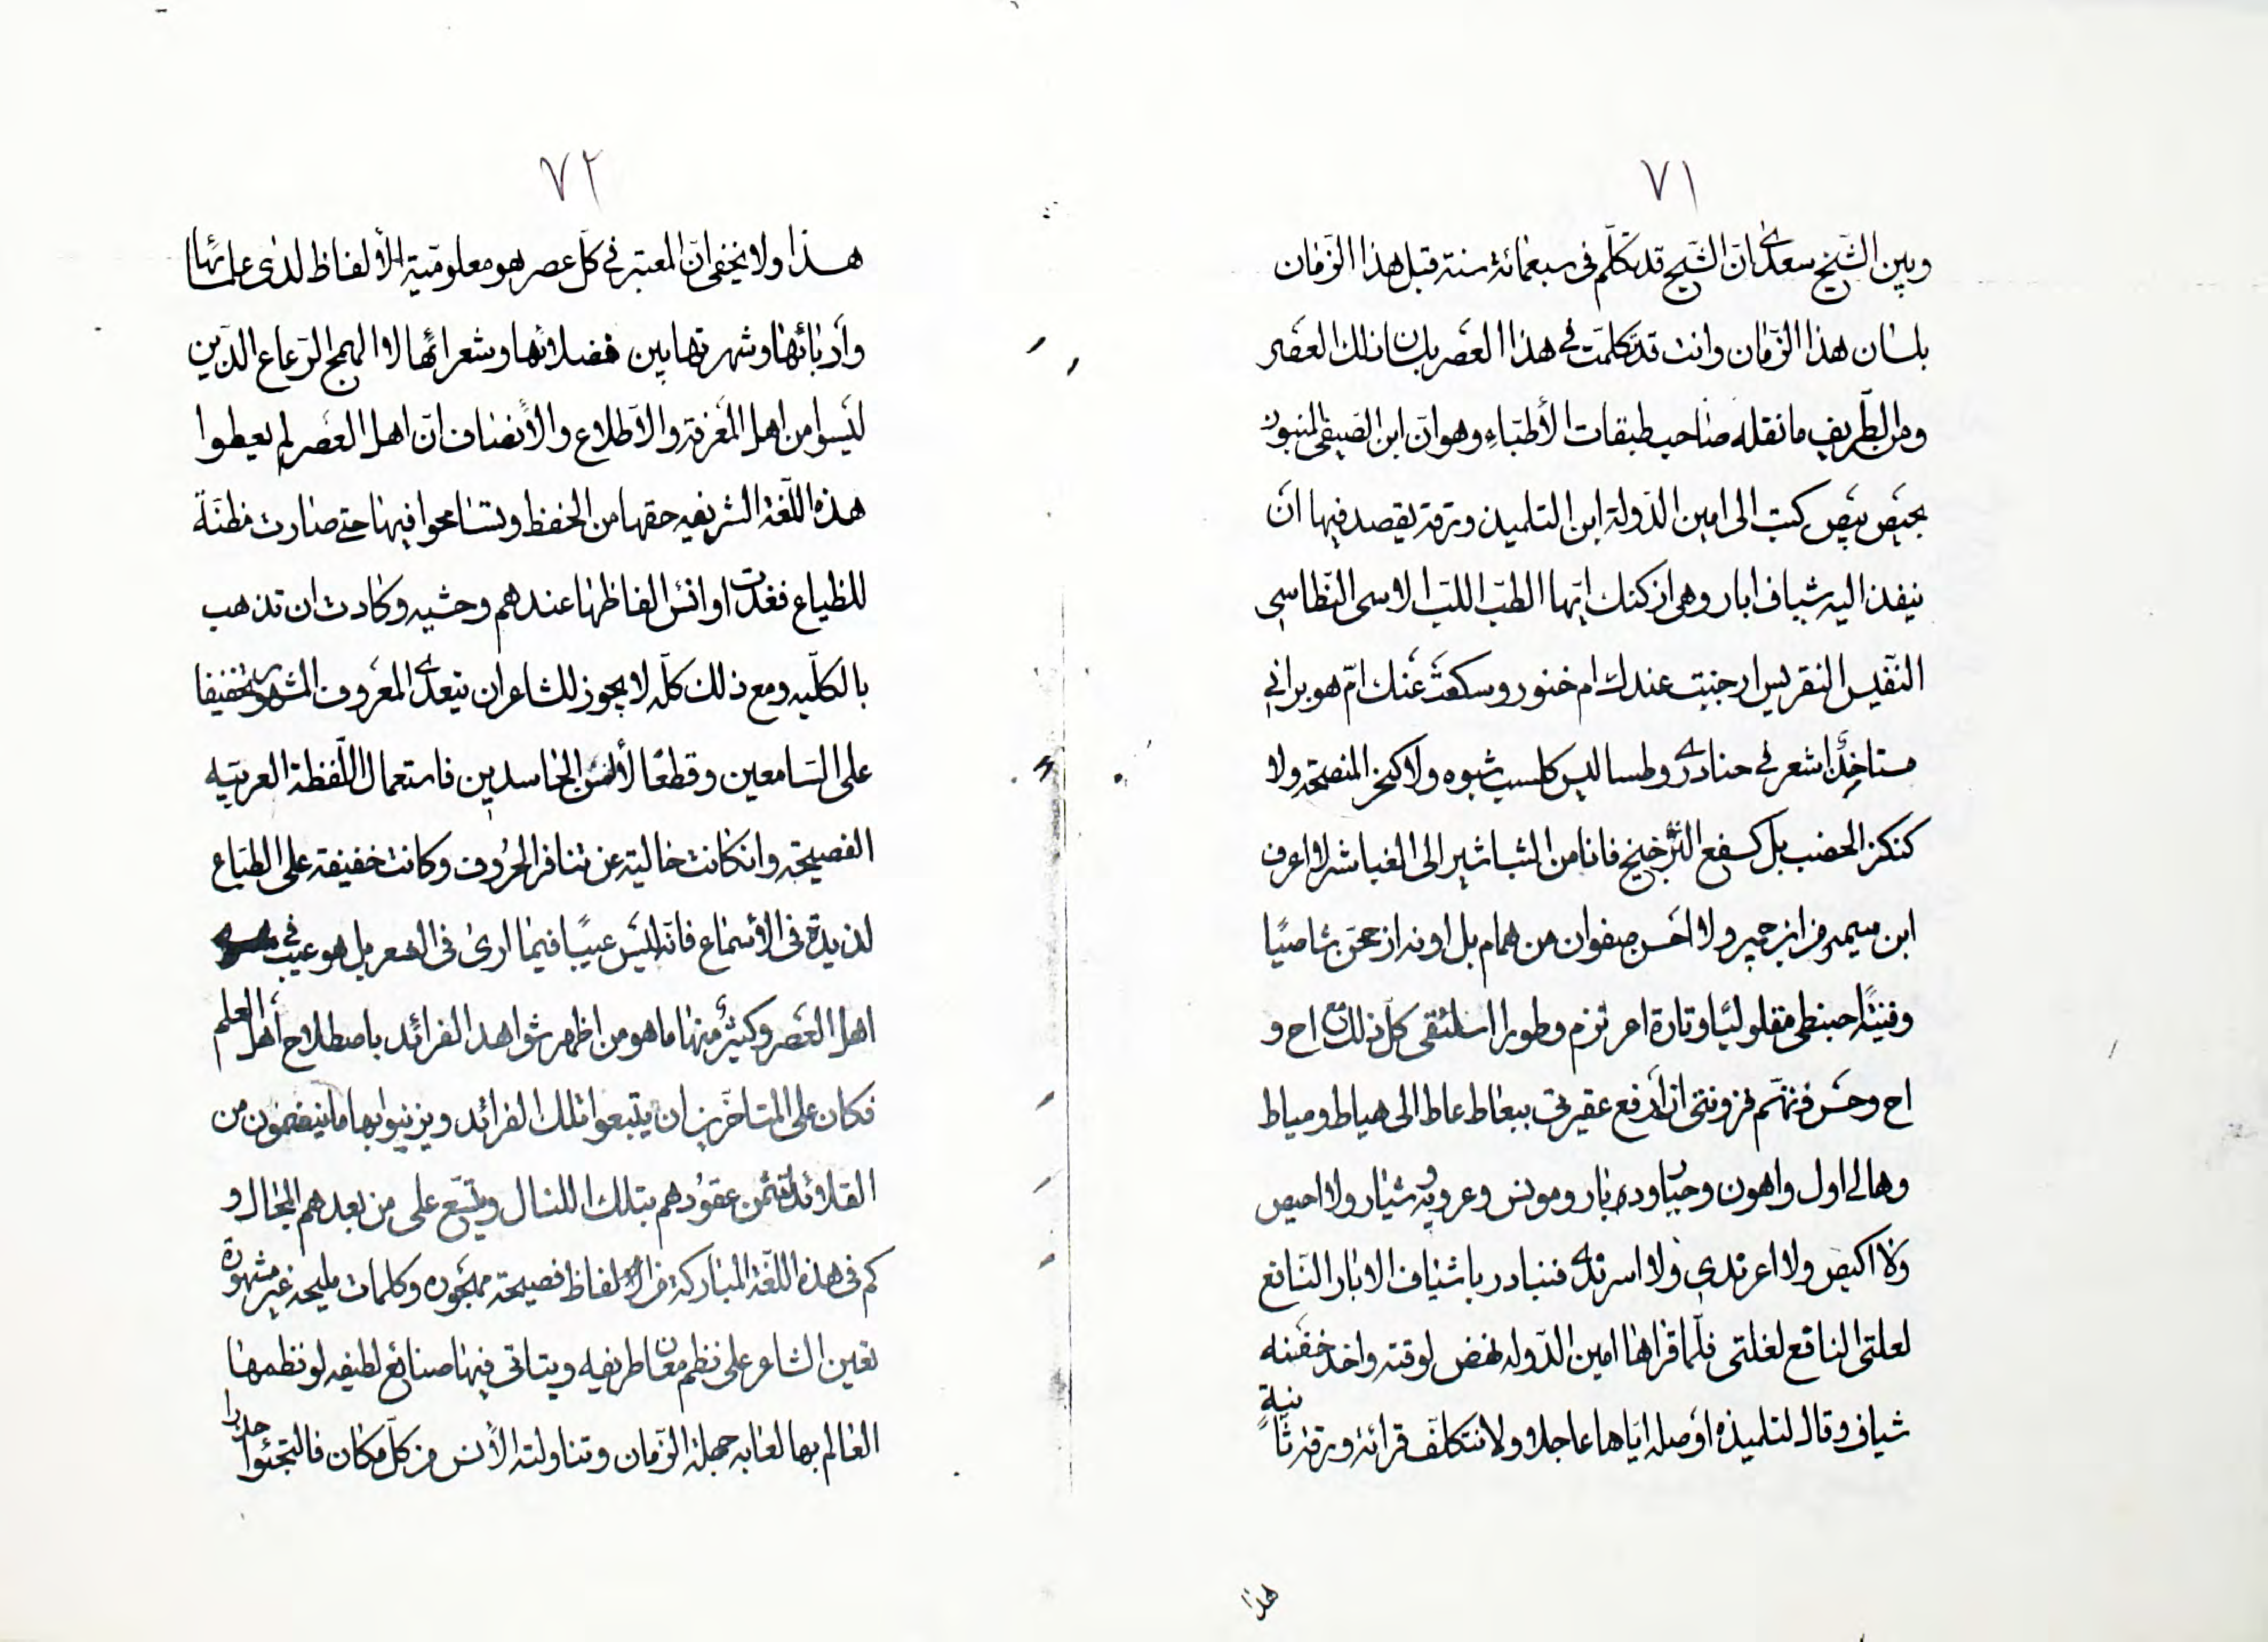 ٧١
وبين الشيخ سعدى انّ الشيخ قد تكلّم فى سبعمائة سنة قبل هذا الزّمان
بلسان هذا الزّمان وانت قد تكلمت فى هذا العصر بلسان تلك العصر
ومن الطّريف ما نقله صاحب طبقات الأطبّاء وهو انّ ابن الصيفى المنبوز
بحيص بيص كتب الى امين الدّولة ابن التلميذ ورقة يقصد فيها ان
ينفذ اليه شياف ابار وهى ازكنك ايّها الطبّ اللبّ الاسى النّطاسى
النّفيس النقريس ارجنت عندك ام خنور وسكعت عنك امّ هوبر انى
مستاخذ اشعر فى حنادرى رطسا ليس كلسب شبوه ولا كنخز المنصحة ولا
كنكز الحضب بل كسفع الزّخيخ فانا من التباشير الى الغباشير لا اعرف
ابن سمير من ابن جمير ولا احسن صفوان من همام بل اونه ارجحنّ شاصيًا
وفنية احبنطى مقلوليًا وتارة اعرنزم وطورا اسلنقى كلّ ذلك مع اح و
اح وحس وتهم قرونتى ان ارفع عقيرتى بعاط عاط الى هياط ومياط
وها لى اول واهون وجبار ودبار ومونس وعروبة وشيار ولا احيص
ولا اكيص ولا اعرندى ولا اسرندى فتبادر باشياف الابار النّافع
لعلتى الناقع لغلتى فلّما قراها امين الدّوله نهض لوقته واخذ حفنة
شياف وقال لتلميذه اوصله ايّاها عاجلا ولا نتكلّف قرائة ورقة ثانية
هذا
٧٢
هذا ولا يخفى انّ المعتبر فى كلّ عصر هو معلوميّة الألفاظ لدى علمائها
وادبائها وشهرتها بين فضلائها وشعرائها لا الهمج الرّعاع الذّين
ليسوا من اهل المعرفة والاطلاع والأنصاف انّ اهل العصر لم يعطوا
هذه اللّغة الشريفه حقها من الحفظ وتسامحوا فيها حتى صارت مظنّة
للظياع فغدت اوانس الفاظها عندهم وحشيه وكادت ان تذهب
بالكلّيه ومع ذلك كلّه لا يجوز للشاعر ان يتعدى المعروف المشهور تخفيفا
على السّامعين وقطعًا لألسن الحاسدين فاستعمال اللّفظة العربيّه
الفصيحة وان كانت خالية عن تنافر الحروف وكانت خفيفة على الطباع
لذيذة فى الأسماع فانّه ليس عيبًا فيما ارى فى الشعر بل هو عيب فى
اهل العصر وكثير منها ما هو من اظهر شواهد الفرائد باصطلاح اهل العلم
فكان على المتاخّرين ان يتبعوا تلك الفرائد ويزينوا بها ما ينضمون من
القلائد لتثمن عقودهم بتلك اللئال ويتّسع على من بعدهم المجال و
كم فى هذه اللّغة المباركة من الفاظ فصيحة مهجوره وكلمات مليحه غير مشهورة
تعين الشاعر على نظم معان طريفه ويتاتى فيها صنايع لطيفه لو نظمها
العالم بها لعابه جهلة الزّمان وتناولته الألسن من كلّ مكان فالتجئوا حذرا